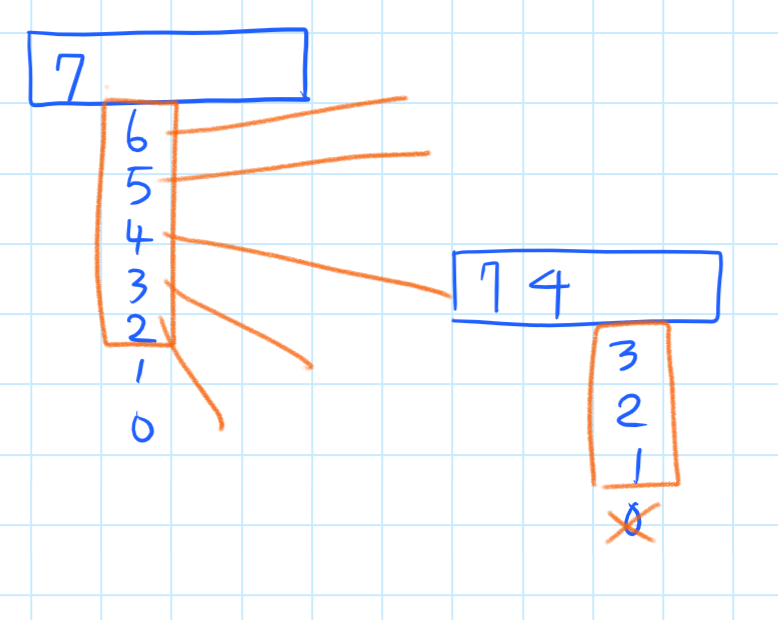 7
6
5
4
3
2
1
0
7 4
3
2
1
0